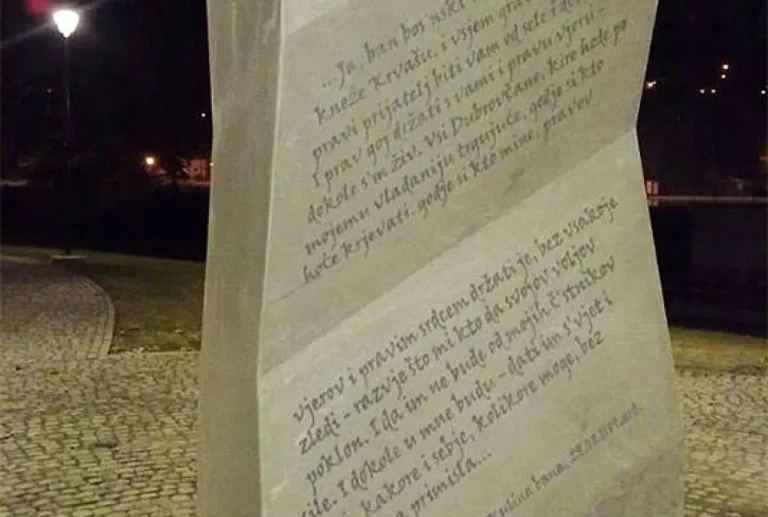 ...Ja, ban bos'nski
kneže Krvašu, i vsjem građ
pravi prijatelj biti vam od sele i do
I prav goj držati s vami i pravu vjeru-
dokole s'm živ. Vsi Dubrovčane, kire hode po
mojemu vladaniju trgujuće, godje si kto
hoće krjevati, godje si kto mine, pravov
vjerov i pravim srdcem držati je, bez vsakoje
zledi - razvje što mi kto da svojov voljov
poklon. I da im ne bude od mojih č'stnikov
sile. I dokole u mne budu - dati im s'vjet i
kakore i sebje, kolikore moge, bez
primisla...
Kulina bana, 29.08.1189.god.